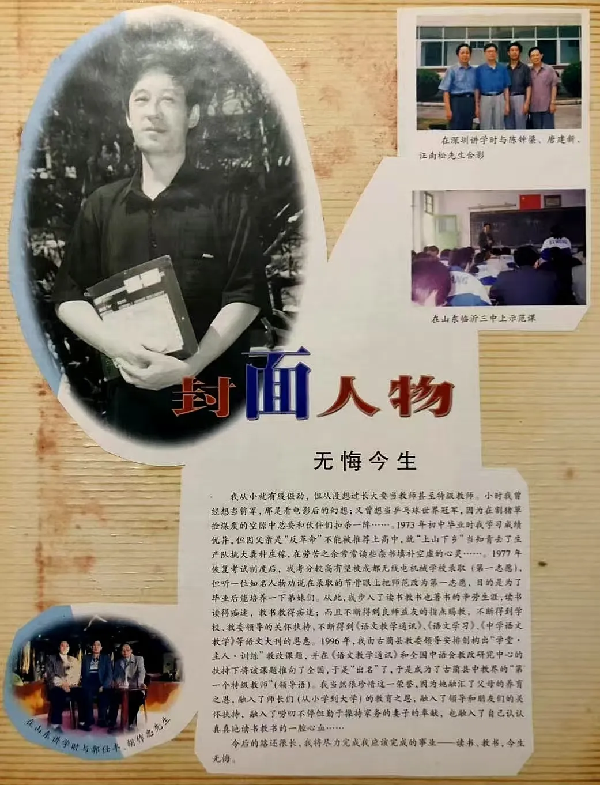 在深圳讲学时与陈钟梁、唐建新、
江南松先生合影
在山东临沂三中上示范课
封面人物
无悔今生
我从小就有缓做劲，但从没想过长大要当教师甚至特级教师。小时我曾
经想当将军，那是看电影后的幻想；又曾想当乒乓球世界冠军，因为在割猪草
捡煤炭的空隙中总要和伙伴们扣杀一阵……。1973年初中毕业时我学习成绩
优异，但因父亲是“反革命”不能被推荐上高中，就“上山下乡”当知青去了生
产队挑大粪种庄稼，在劳苦之余常常诵些杂书填补空虚的心灵……。1977年
恢复考试制度后，我考分较高有望被成都无线电机械学校录取（第一志愿），
但听一位知名人物劝说在录取的节骨眼上把师范改为第一志愿，目的是为了
毕业后能培养一下弟妹们。从此，我步入了读书教书也著书的辛劳生涯：读书
读得痴迷，教书教得痴迷；而且不断得到良师益友的指点赐教，不断得到学
校、教委领导的关怀扶持，不断得到《语文教学通讯》、《语文学习》、《中学语文
教学》等语文大刊的恩惠。1996年，我由古蔺县教委领导安排构出“学堂·
主人·训练”教改课题，并在《语文教学通讯》和全国中语会教改研究中心的
扶持下将该课题推向了全国，于是“出名”了，于是成为了古蔺县中教界的“第
一个特级教师”（领导语）。我当然很珍惜这一荣誉，因为她融汇了父母的养育
之恩，融入了师长们（从小学到大学）的教育之恩，融入了领导和朋友们的关
怀扶持，融入了唠叨不停但勤于操持家务的妻子的奉献，也融入了自己认认
真真地读书教书的一腔心血……
今后的路还很长，我将尽力完成我应该完成的事业——读书、教书，今生
无悔。
在山东讲学时与郭任丰、胡作忠先生